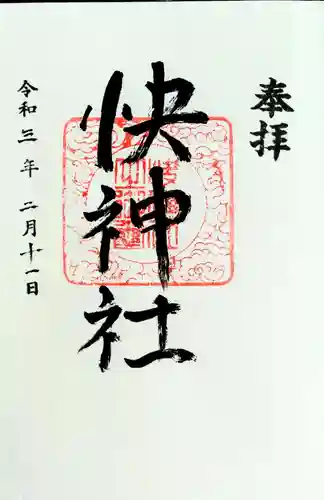 奉拝
快神社
令和三年二月十一日